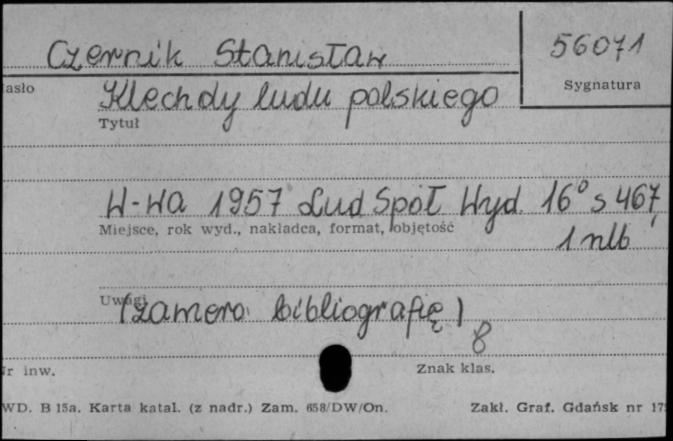 Czernik Stanisław 56071
asło Sygnatura
Klechdy ludu polskiego
Tytuł
W-wa 1957 Lud Spół Wyd. 16° s 467,
Miejsce, rok wyd., nakładca, format, objętość
1 nlb
Uwagi
(zamera bibliografię)
8
r inw. Znak klas.
WD. B 15a. Karta katal. (z nadr.) Zam. 658/DW/On. Zakł. Graf. Gdańsk nr 17